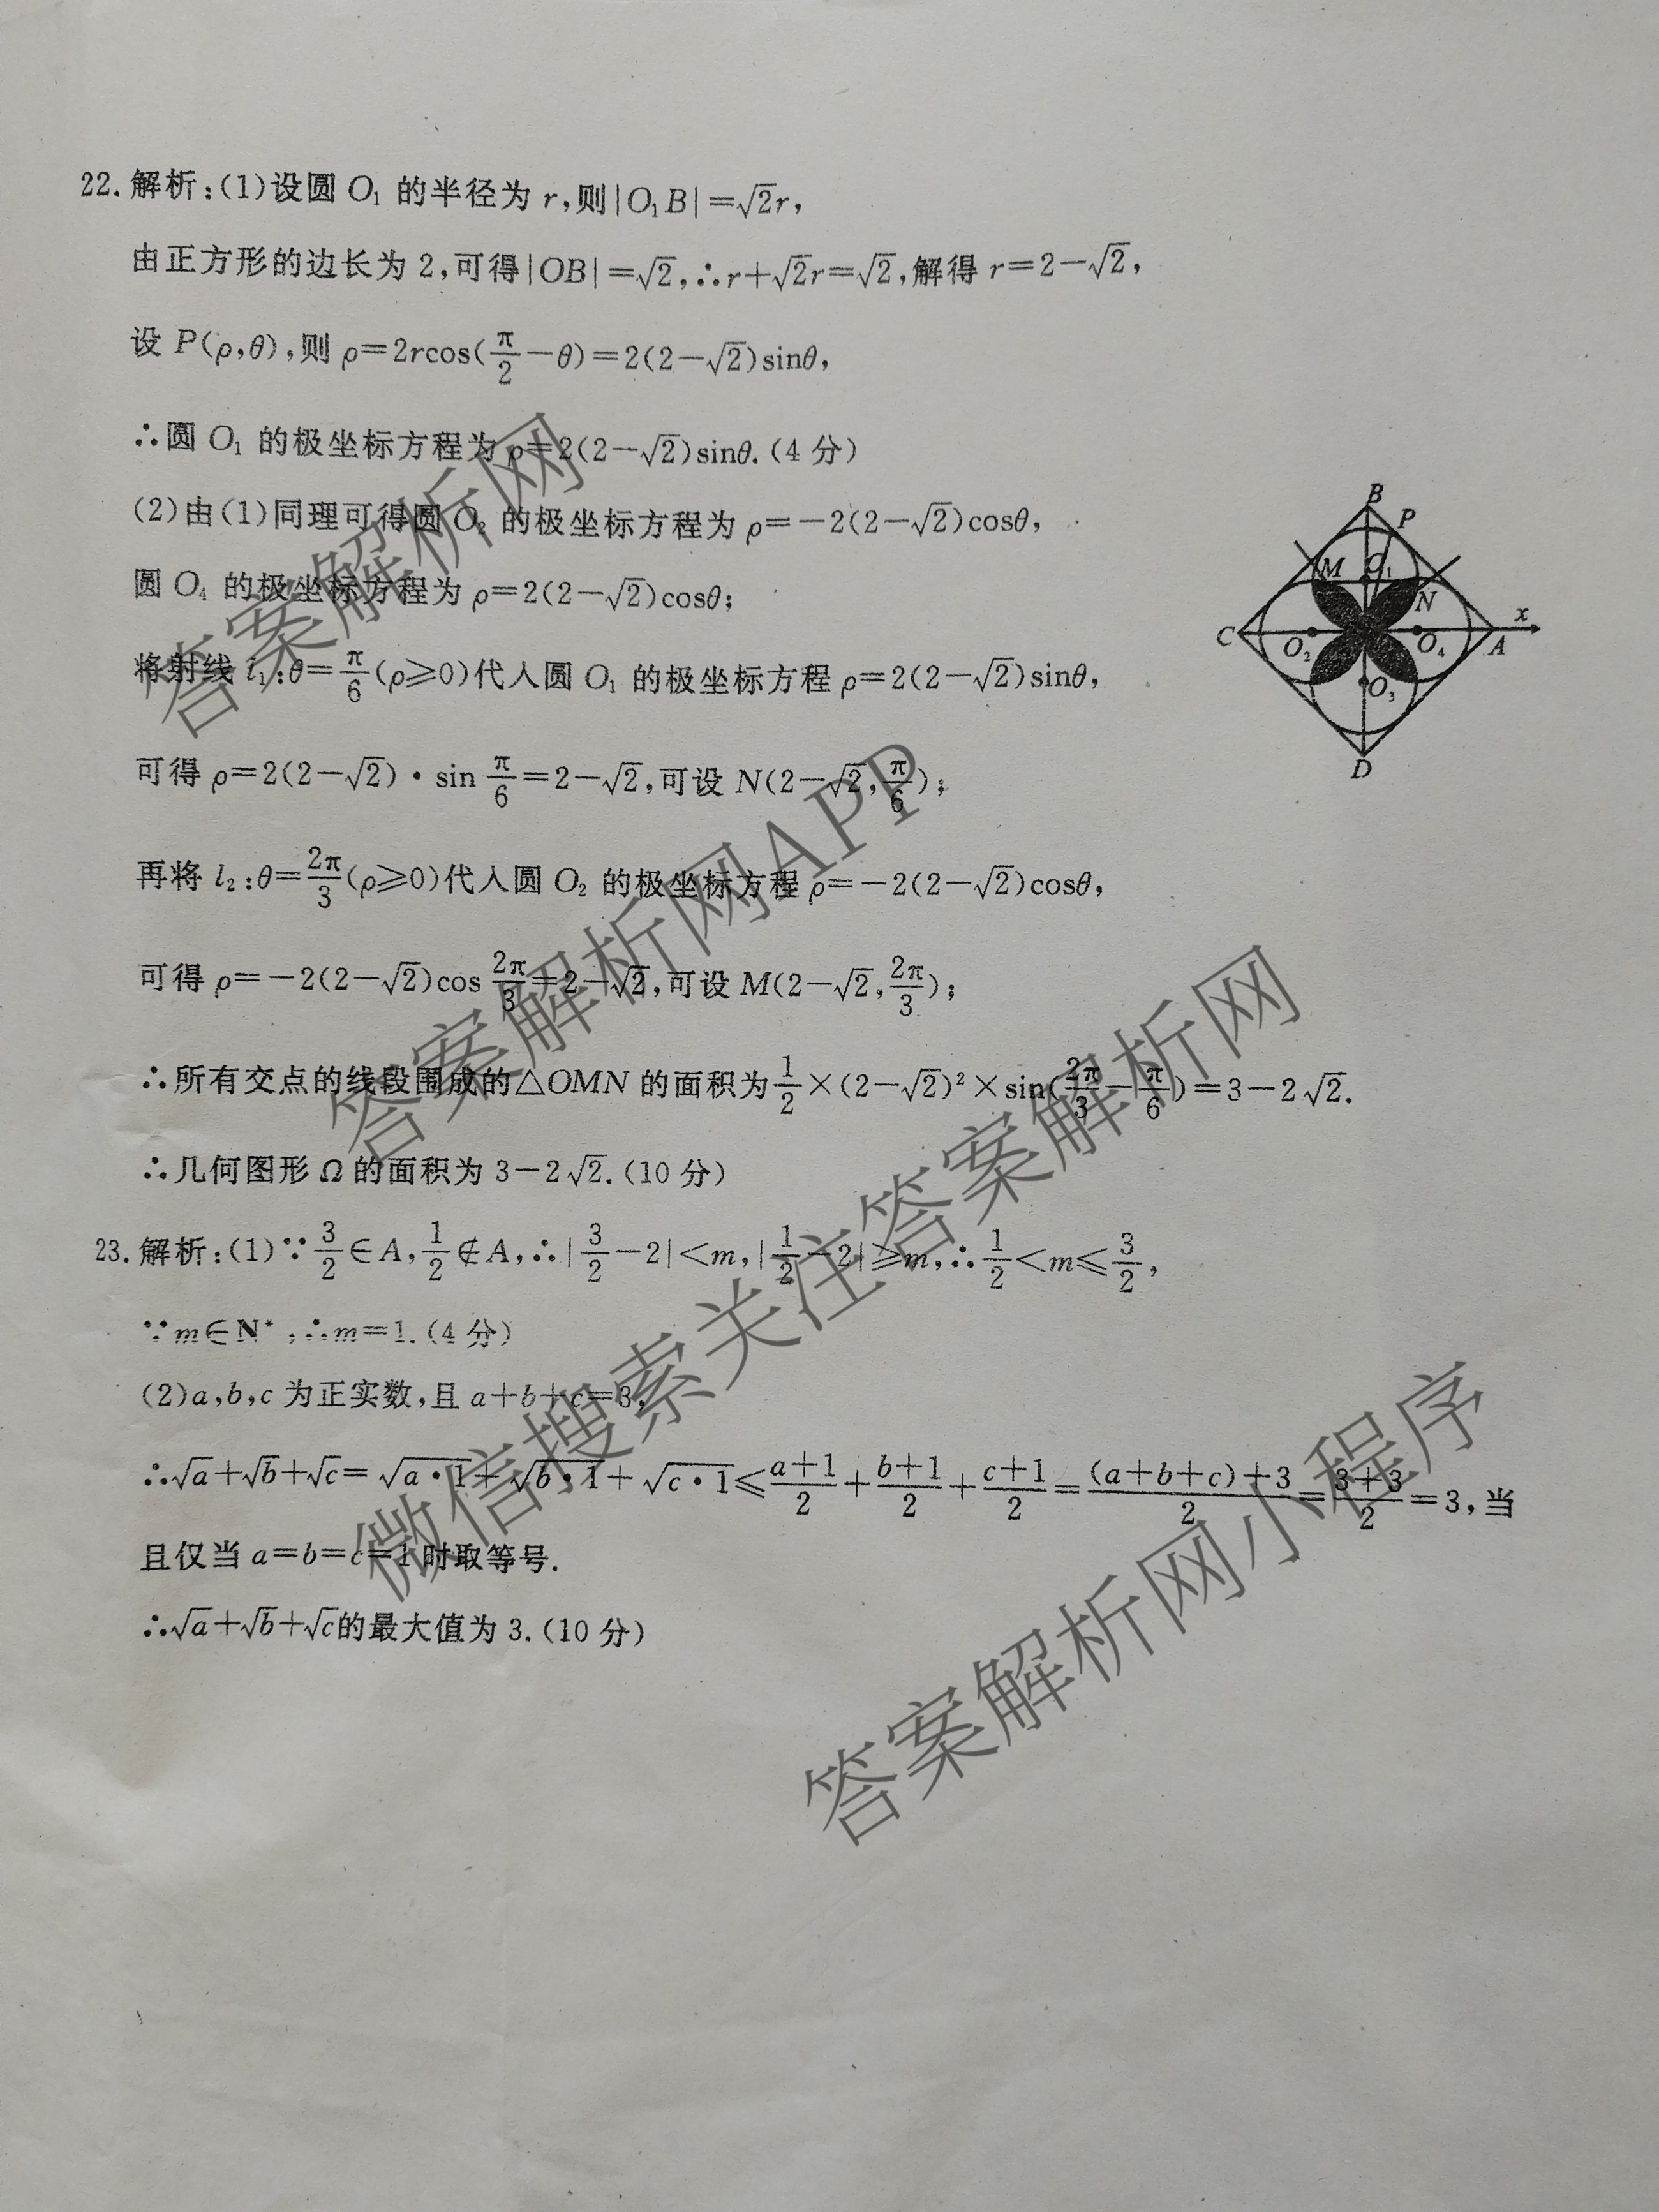 22.解析:(1)设圆 O₁ 的半径为 r,则|O₁B|=√2r,
由正方形的边长为 2,可得|OB|=√2,∴r+√2r=√2,解得 r=2-√2,
设 P(ρ,θ),则 ρ=2rcos(π/2-θ)=2(2-√2)sinθ,
∴圆 O₁ 的极坐标方程为 ρ=2(2-√2)sinθ.(4 分)
(2)由(1)同理可得圆 O₂ 的极坐标方程为 ρ=-2(2-√2)cosθ,
圆 O₄ 的极坐标方程为 ρ=2(2-√2)cosθ;
将射线 l₁:θ=π/6(ρ≥0)代入圆 O₁ 的极坐标方程 ρ=2(2-√2)sinθ,
可得 ρ=2(2-√2)·sin π/6=2-√2,可设 N(2-√2,π/6);
再将 l₂:θ=2π/3(ρ≥0)代入圆 O₂ 的极坐标方程 ρ=-2(2-√2)cosθ,
可得 ρ=-2(2-√2)cos 2π/3=2-√2,可设 M(2-√2,2π/3);
∴所有交点的线段围成的△OMN 的面积为 1/2×(2-√2)²×sin(2π/3-π/6)=3-2√2.
∴几何图形 Ω 的面积为 3-2√2.(10 分)
B
P
M
O₁
N
x
C
O₂
O₄
A
O₃
D
23.解析:(1)∵3/2∈A,1/2∉A,∴|3/2-2|<m,|1/2-2|≥m,∴1/2<m≤3/2,
∵m∈N*,∴m=1.(4 分)
(2)a,b,c 为正实数,且 a+b+c=3,
∴√a+√b+√c=√(a·1)+√(b·1)+√(c·1)≤(a+1)/2+(b+1)/2+(c+1)/2=((a+b+c)+3)/2=(3+3)/2=3,当
且仅当 a=b=c=1 时取等号.
∴√a+√b+√c的最大值为 3.(10 分)
答案解析网
答案解析网APP
微信搜索关注答案解析网
答案解析网小程序